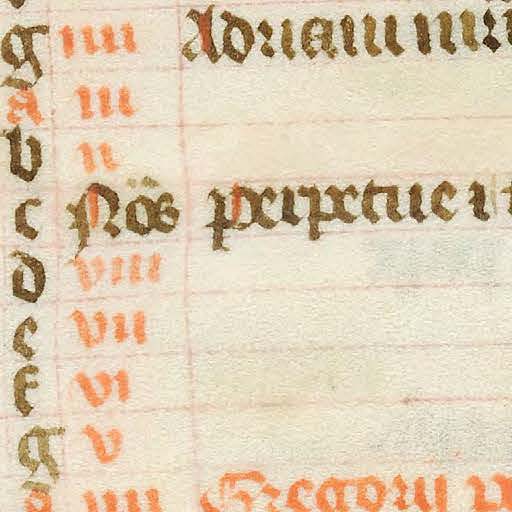 g iiii Adriani mr̄
A iii
b ii
c Nōs perpetue i
d viii
e vii
f vi
g v
A iiii Gregorij